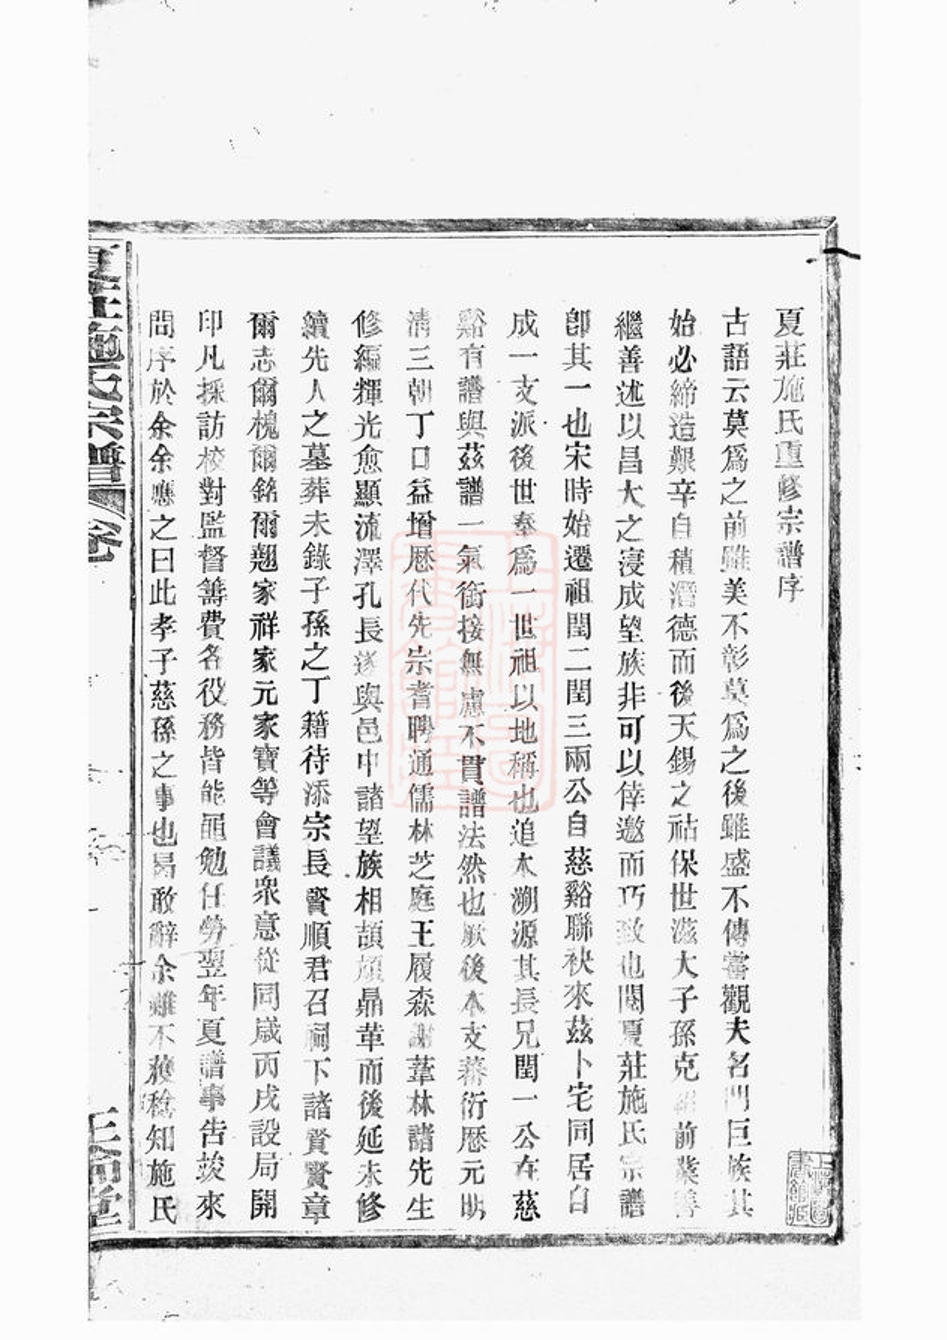 夏莊施氏重修宗譜序
古語云莫爲之前雖美不彰莫爲之後雖盛不傳嘗觀夫名門巨族其
始必締造艱辛自積潛德而後天錫之祜保世滋大子孫克紹前業善
繼善述以昌大之寖成望族非可以倖邀而巧致也閱夏莊施氏宗譜
卽其一也宋時始遷祖閏二閏三兩公自慈谿聯袂來茲卜宅同居自
成一支派後世奉爲一世祖以地稱也追本溯源其長兄閏一公在慈
谿有譜與茲譜一氣銜接無慮不貫譜法然也厥後本支蕃衍歷元明
淸三朝丁口益增歷代先宗耆聘通儒林芝庭王履森謝葦林諸先生
修編輝光愈顯流澤孔長遂與邑中諸望族相頡頏鼎革而後延未修
續先人之墓葬未錄子孫之丁籍待添宗長賢順君召祠下諸賢賢章
爾志爾槐爾銘爾翹家祥家元家寶等會議衆意從同咸丙戌設局開
印凡採訪校對監督籌費各役務皆能黽勉任勞翌年夏譜事告竣來
問序於余余應之曰此孝子慈孫之事也曷敢辭余雖不穫稔知施氏
夏莊施氏宗譜 卷
上海圖書館藏